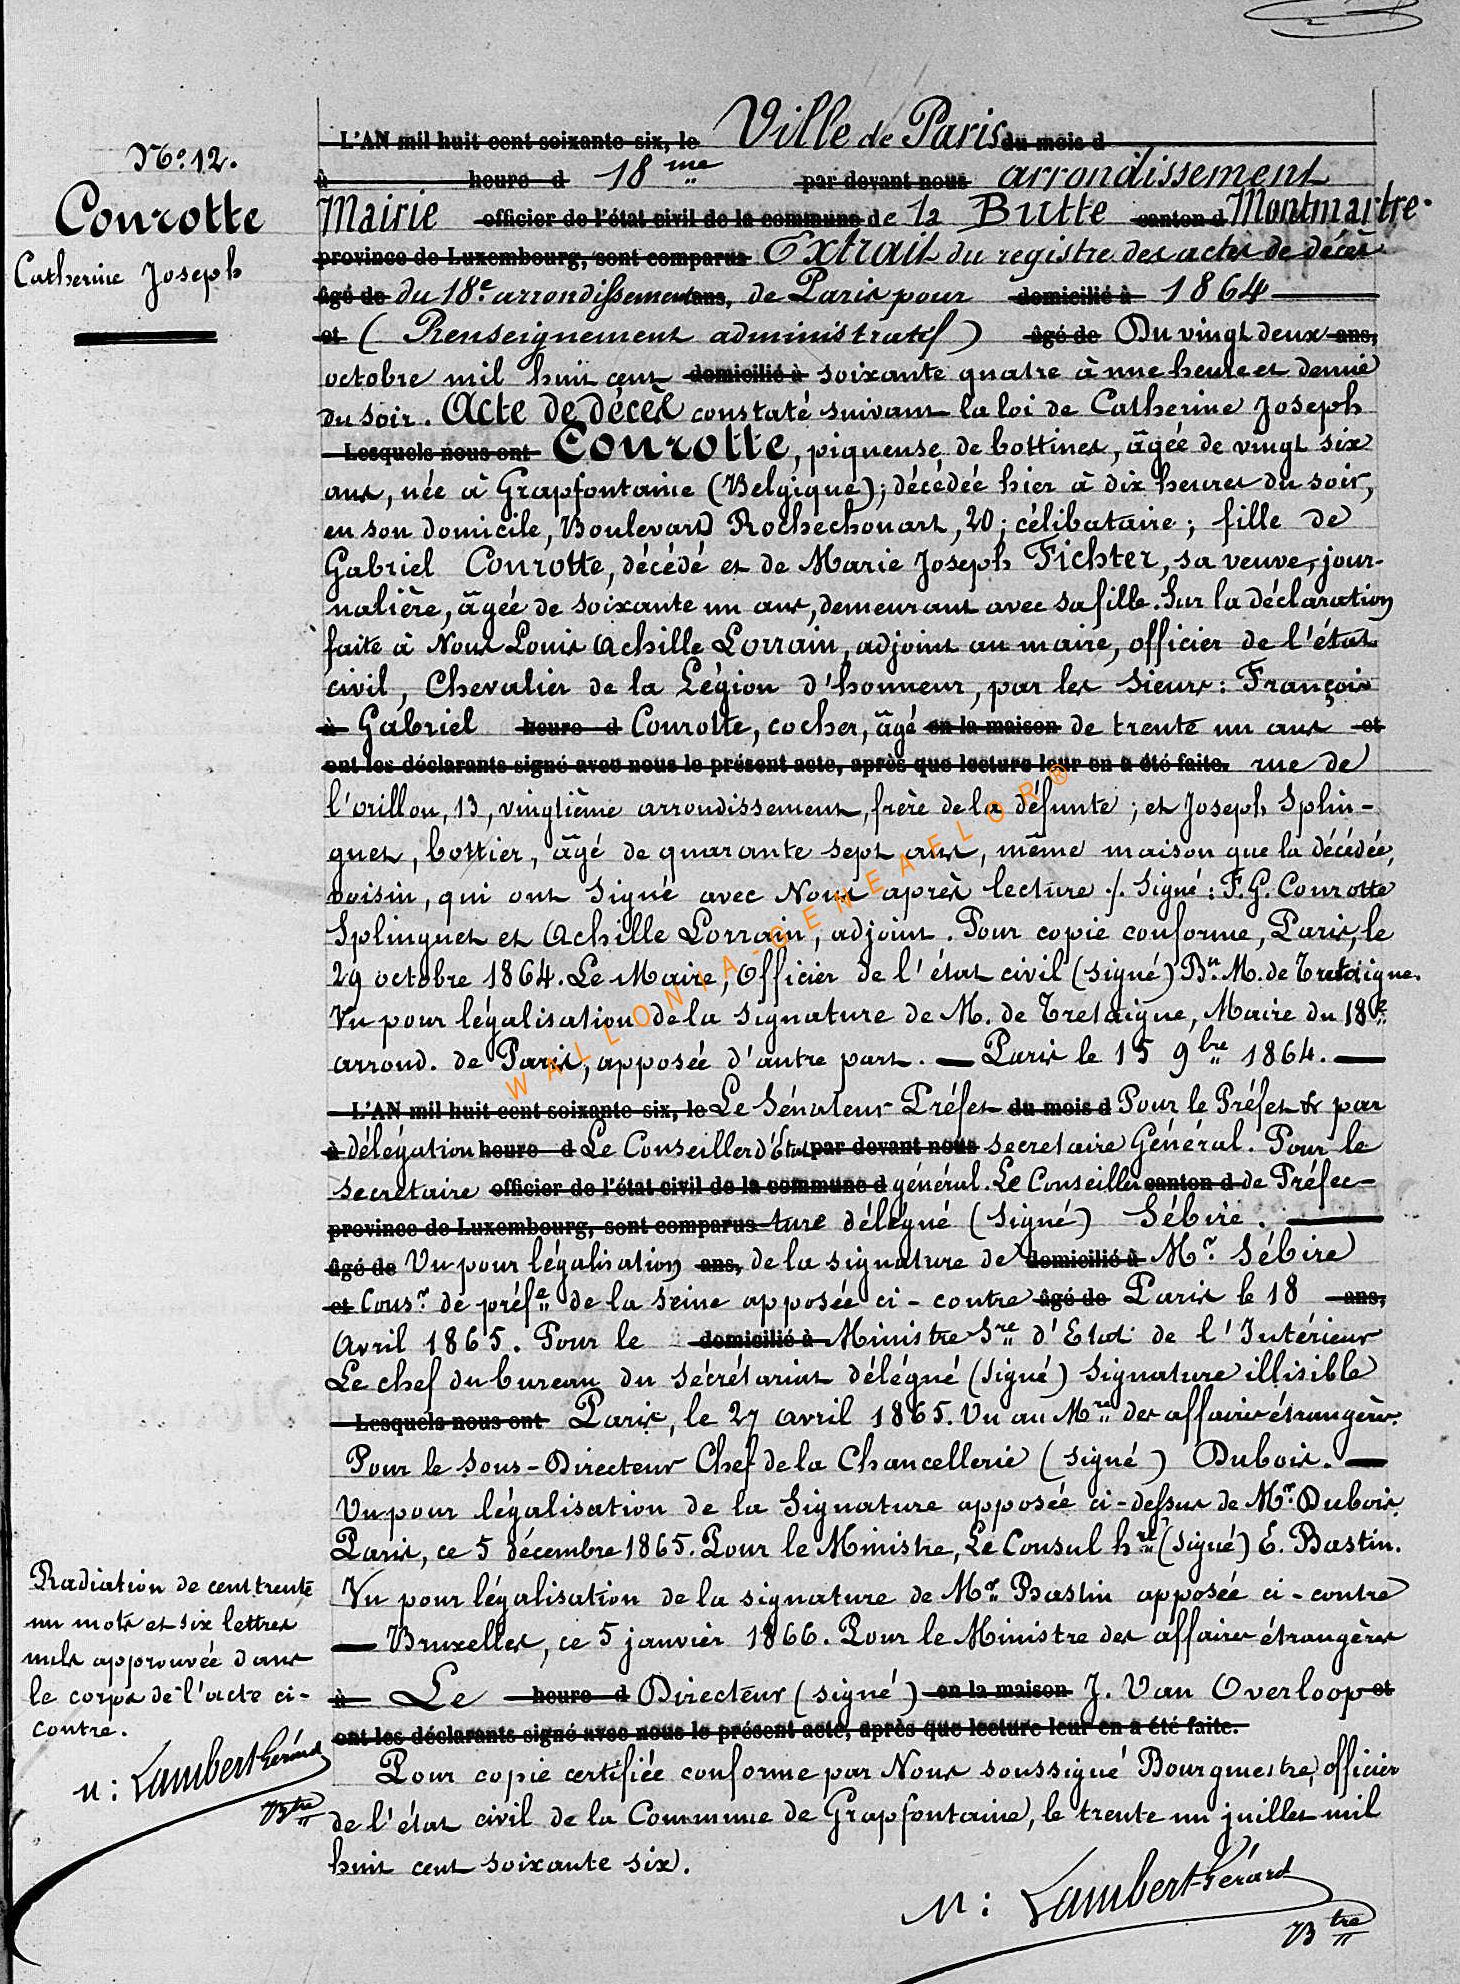 N° 12.
Conrotte
Catherine Joseph
L'AN mil huit cent soixante-six, le Ville de Paris du mois d
à heure d 18me par devant nous arrondissement
Mairie officier de l'état civil de la commune de la Butte canton d Montmartre.
province de Luxembourg, sont comparus Extrait du registre des actes de décès
âgé de du 18e arrondissement ans, de Paris pour domicilié à 1864
et (Renseignement administratif) âgé de Du vingt deux ans,
octobre mil huit cent domicilié à soixante quatre à une heure et demie
du soir. Acte de décès constaté suivant la loi de Catherine Joseph
Lesquels nous ont Conrotte, piqueuse de bottines, âgée de vingt six
ans, née à Grapfontaine (Belgique); décédée hier à dix heures du soir,
en son domicile, Boulevard Rochechouart, 20; célibataire; fille de
Gabriel Conrotte, décédé et de Marie Joseph Fichter, sa veuve, jour-
nalière, âgée de soixante un ans, demeurant avec sa fille. Sur la déclaration
faite à Nous Louis Achille Lorrain, adjoint au maire, officier de l'état
civil, Chevalier de la Légion d'honneur, par les sieurs: François
à Gabriel heure d Conrotte, cocher, âgé en la maison de trente un ans et
ont les déclarants signé avec nous le présent acte, après que lecture leur en a été faite. rue de
l'orillon, 13, vingtième arrondissement, frère de la défunte; et Joseph Splin-
guet, bottier, âgé de quarante sept ans, même maison que la décédée,
voisin, qui ont signé avec Nous après lecture ./. Signé: F. G. Conrotte
Splinguet et Achille Lorrain, adjoint. Pour copie conforme, Paris, le
29 octobre 1864. Le Maire, Officier de l'état civil (signé) Bn M. de Tretaigne.
Vu pour légalisation de la signature de M. de Tretaigne, Maire du 18e
arrond. de Paris, apposée d'autre part. — Paris le 15 9bre 1864. —
L'AN mil huit cent soixante-six, le Le Sénateur Préfet du mois d Pour le Préfet & par
à délégation heure d Le Conseiller d'État par devant nous secretaire Général. Pour le
secretaire officier de l'état civil de la commune d général. Le Conseiller canton d de Préfec-
province de Luxembourg, sont comparus ture délégué (signé) Sébire. —
âgé de Vu pour légalisation ans, de la signature de domicilié à Mr. Sébire
et Consr. de préfe de la Seine apposée ci-contre âgé de Paris le 18 ans,
Avril 1865. Pour le domicilié à Ministre Sre d'Etat de l'Intérieur
Le chef du bureau du sécrétariat délégué (signé) signature illisible
Lesquels nous ont Paris, le 27 avril 1865. Vu au Mre des affaires étrangères.
Pour le Sous-Directeur Chef de la Chancellerie (signé) Dubois. —
Vu pour légalisation de la signature apposée ci-dessus de Mr. Dubois.
Paris, ce 5 décembre 1865. Pour le Ministre, Le Consul hre (signé) E. Bastin.
Vu pour légalisation de la signature de Mr. Bastin apposée ci-contre
— Bruxelles, ce 5 janvier 1866. Pour le Ministre des affaires étrangères
à Le heure d Directeur (signé) en la maison J. Van Overloop et
ont les déclarants signé avec nous le présent acte, après que lecture leur en a été faite.
Pour copie certifiée conforme par Nous soussigné Bourgmestre, officier
de l'état civil de la Commune de Grapfontaine, le trente un juillet mil
huit cent soixante six.
N: Lambert-Gérard
Btre
Radiation de cent trente
un mots et six lettres
nuls approuvée dans
le corps de l'acte ci-
contre.
N: Lambert Gérard
Btre
WALLONIA-GENEAELOR®